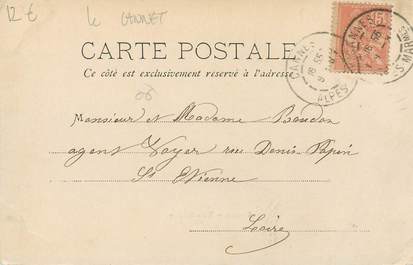 12 € Le CANNET
CARTE POSTALE
Ce côté est exclusivement reservé à l'adresse
06
Monsieur et Madame Baudon
agent Voyer rue Denis Papin
St Etienne
Loire
CANNES
ALPES
CANNES
15